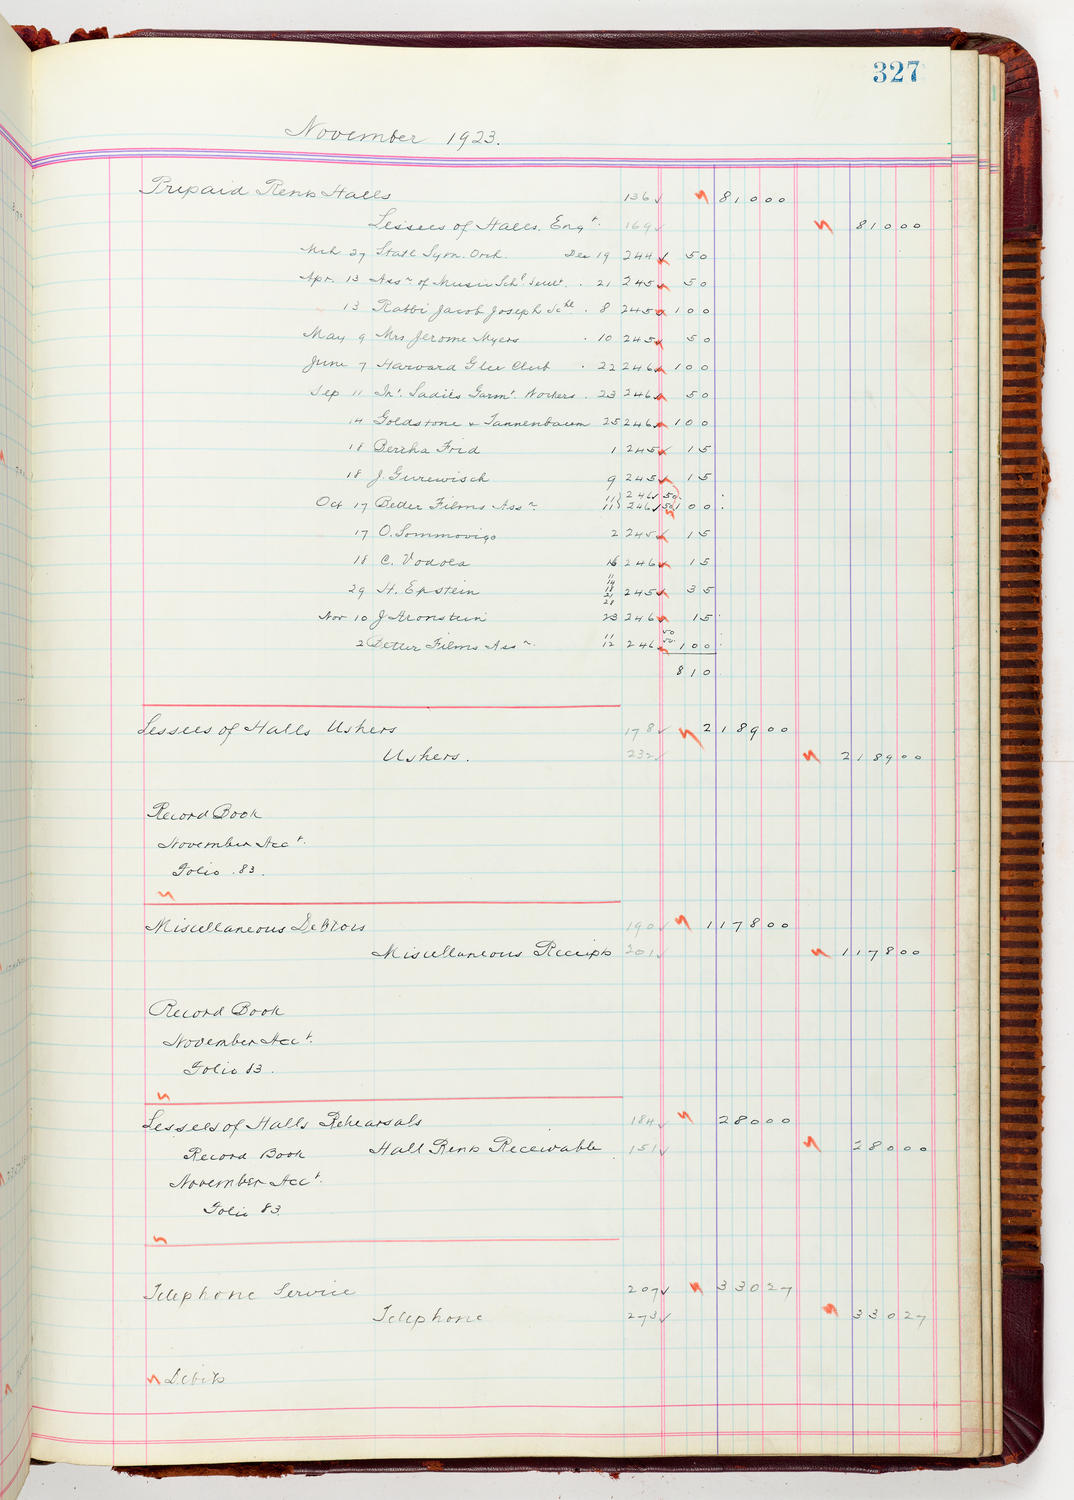 327
November 1923.
Prepaid Rents Halls 136 ✓ 81000
Lessees of Halls. Engt. 169 ✓ 81000
Mch 27 State Sym. Orch. Dec 19 244 ✓ 50
Apr. 13 Assn of Music Schl Settt. . 21 245 50
13 Rabbi Jacob Joseph Schl . 8 245 100
May 9 Mrs Jerome Myers . 10 245 50
June 7 Harvard Glee Club . 22 246 100
Sep 11 Int. Ladies Garmt. Workers . 23 246 50
14 Goldstone & Tannenbaum 25 246 100
18 Bertha Frid 1 245 15
18 J. Gurewisch 9 245 15
11 246 ✓ 50
Oct 17 Better Films Assn. 11 246 ✓ 50 100
17 O. Sommovigo 2 245 15
18 C. Vodola 16 246 15
29 H. Epstein 11 14 18 21 28 245 35
Nov 10 J Aronstein 23 246 15
2 Better Films Assn. 11 12 246 50 50 100
810
Lessees of Halls Ushers 178 ✓ 218900
Ushers. 232 ✓ 218900
Record Book
November Acct.
Folio .83.
Miscellaneous Debtors 190 ✓ 117800
Miscellaneous Receipts 201 ✓ 117800
Record Book
November Acct.
Folio 83.
Lessees of Halls Rehearsals 184 ✓ 28000
Record Book Hall Rents Receivable 151 ✓ 28000
November Acct.
Folio 83.
Telephone Service 207 ✓ 33027
Telephone 273 ✓ 33027
Debits